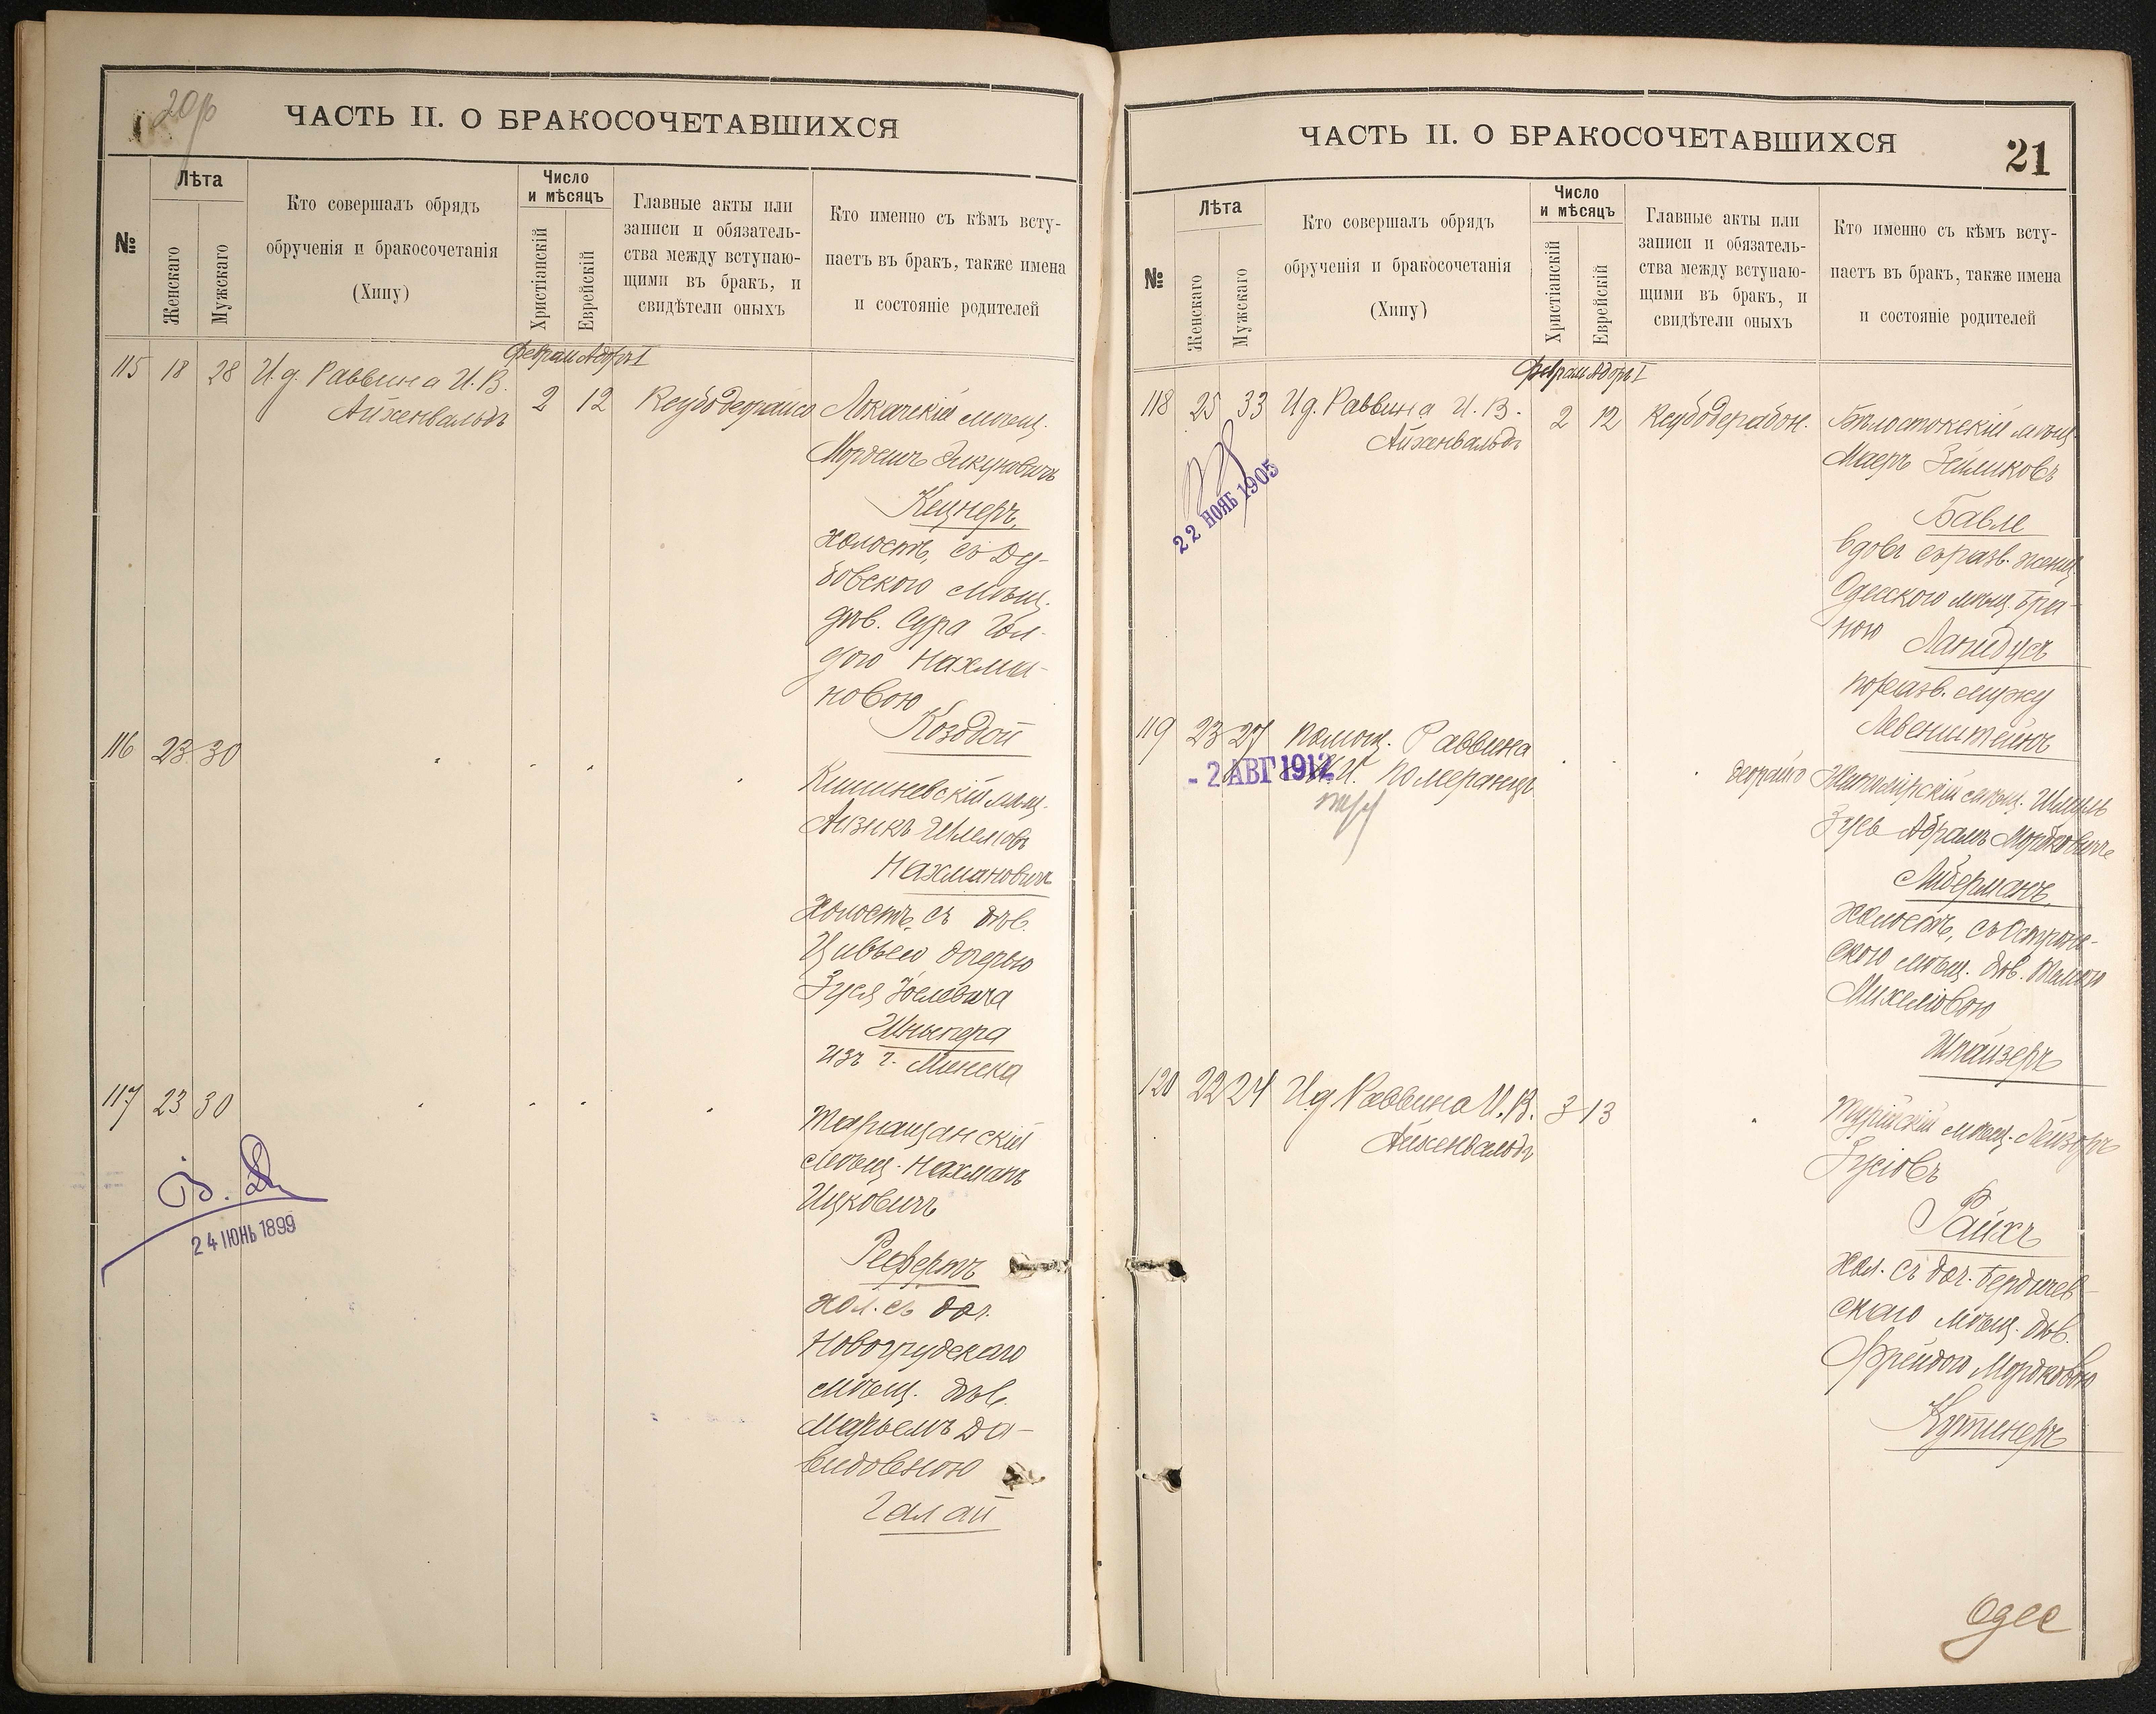 20р
ЧАСТЬ II. О БРАКОСОЧЕТАВШИХСЯ
№
Лѣта
Женскаго
Мужскаго
Кто совершалъ обрядъ
обрученія и бракосочетанія
(Хипу)
Число
и мѣсяцъ
Христіанскій
Еврейскій
Главные акты или
записи и обязатель-
ства между вступаю-
щими въ бракъ, и
свидѣтели оныхъ
Кто именно съ кѣмъ всту-
паетъ въ бракъ, также имена
и состояніе родителей
Феврал Адаръ I
115 18 28 И.д. Раввина И.В.
Айхенвальдъ
2 12
Локачскій мѣщ.
Кецнеръ,
холостъ, съ Ду-
бовскою мѣщ.
дѣв. Сура Гол-
дою Нахма-
новою
Коздой
116 23 30
Кишиневскій мѣщ.
Айзикъ Шлемовъ
Нахмановичъ
Холостъ, съ дѣв.
Цивьею дочерью
Зуся Іоселевича
Шныпера
изъ г. Минска
117 23 30
Таращанскій
мѣщ. Нахманъ
Ицковичъ
Рефертъ
хол. съ доч.
Новогрудскаго
мѣщ. дѣв.
Марьемъ Да-
видовною
Галай
24 ІЮНЬ 1899
ЧАСТЬ II. О БРАКОСОЧЕТАВШИХСЯ
21
№
Лѣта
Женскаго
Мужскаго
Кто совершалъ обрядъ
обрученія и бракосочетанія
(Хипу)
Число
и мѣсяцъ
Христіанскій
Еврейскій
Главные акты или
записи и обязатель-
ства между вступаю-
щими въ бракъ, и
свидѣтели оныхъ
Кто именно съ кѣмъ всту-
паетъ въ бракъ, также имена
и состояніе родителей
Феврал Адаръ I
118 25 33 И.д. Раввина И.В.
Айхенвальдъ
2 12
22 НОЯБ 1905
Бѣлостокскій мѣщ.
Мееръ Зейликовъ
Бавле
вдовъ съ разв. женщ.
Одесского мѣщ. Бра-
ною Лапидусъ
по разв. мужу
Левенштейнъ
119 23 27 Помощ. Раввина
И. Померанцъ
- 2 АВГ 1912
Житомірскій мѣщ. Шмуль
Зусь Абрамъ Мордковичъ
Либерманъ,
холостъ, съ Острож-
скою мѣщ. дѣв.
Михелевою
Шпайзеръ
120 22 24 И.д. Раввина И.В.
Айхенвальдъ
3 13
Турійскій мѣщ. Лейзоръ
Зусіовъ
Райхъ
хол. съ доч. Бердичев-
скаго мѣщ. дѣв.
Фрейдою Мордковою
Кутинеръ
Одес